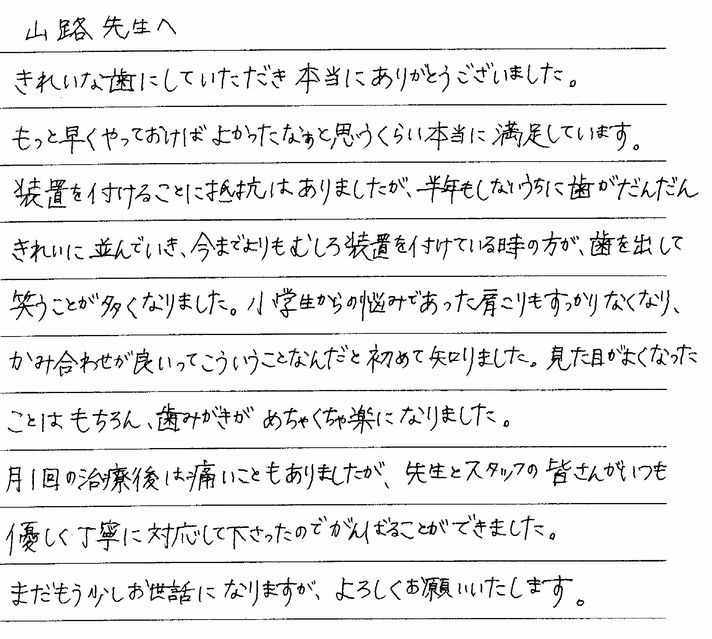 山路先生へ
きれいな歯にしていただき本当にありがとうございました。
もっと早くやっておけばよかったなぁと思うくらい本当に満足しています。
装置を付けることに抵抗はありましたが、半年もしないうちに歯がだんだん
きれいに並んでいき、今までよりもむしろ装置を付けている時の方が、歯を出して
笑うことが多くなりました。小学生からの悩みであった肩こりもすっかりなくなり、
かみ合わせが良いってこういうことなんだと初めて知りました。見た目がよくなった
ことはもちろん、歯みがきがめちゃくちゃ楽になりました。
月1回の治療後は痛いこともありましたが、先生とスタッフの皆さんがいつも
優しく丁寧に対応して下さったのでがんばることができました。
まだもう少しお世話になりますが、よろしくお願いいたします。